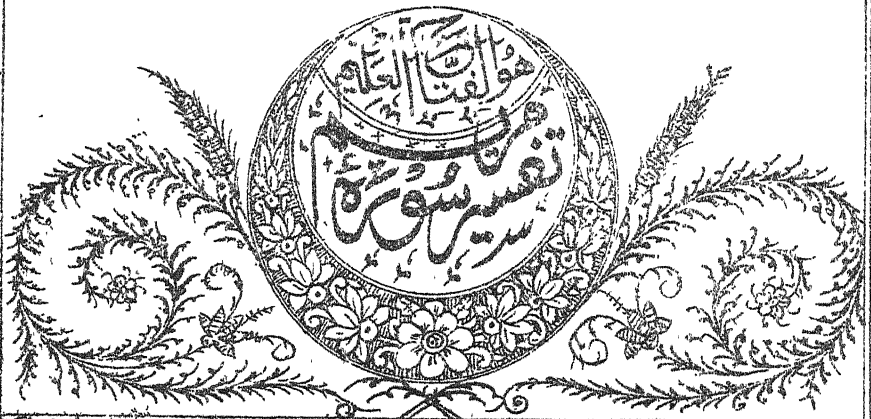 هو الفتاح العليم
تفسير سورۂ مريم